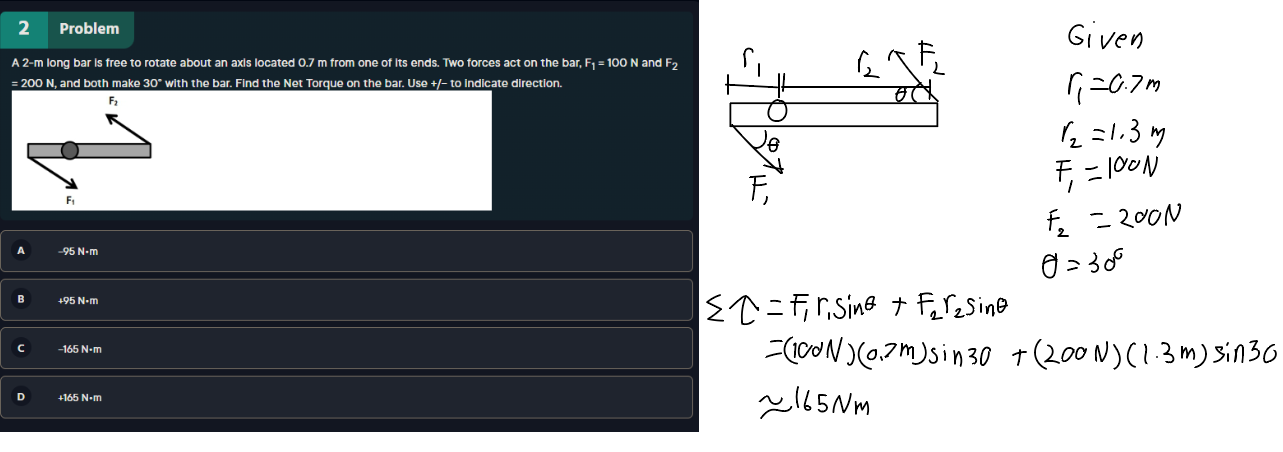 2 Problem
A 2-m long bar is free to rotate about an axis located 0.7 m from one of its ends. Two forces act on the bar, F₁ = 100 N and F₂
= 200 N, and both make 30° with the bar. Find the Net Torque on the bar. Use +/- to indicate direction.
F₂
F₁
A -95 N•m
B +95 N•m
C -165 N•m
D +165 N•m
r₁ r₂ F₂
θ
θ
F₁
Given
r₁ = 0.7 m
r₂ = 1.3 m
F₁ = 100N
F₂ = 200N
θ = 30°
Στ = F₁r₁sinθ + F₂r₂sinθ
=(100N)(0.7m)sin30 + (200N)(1.3m)sin30
≈165Nm